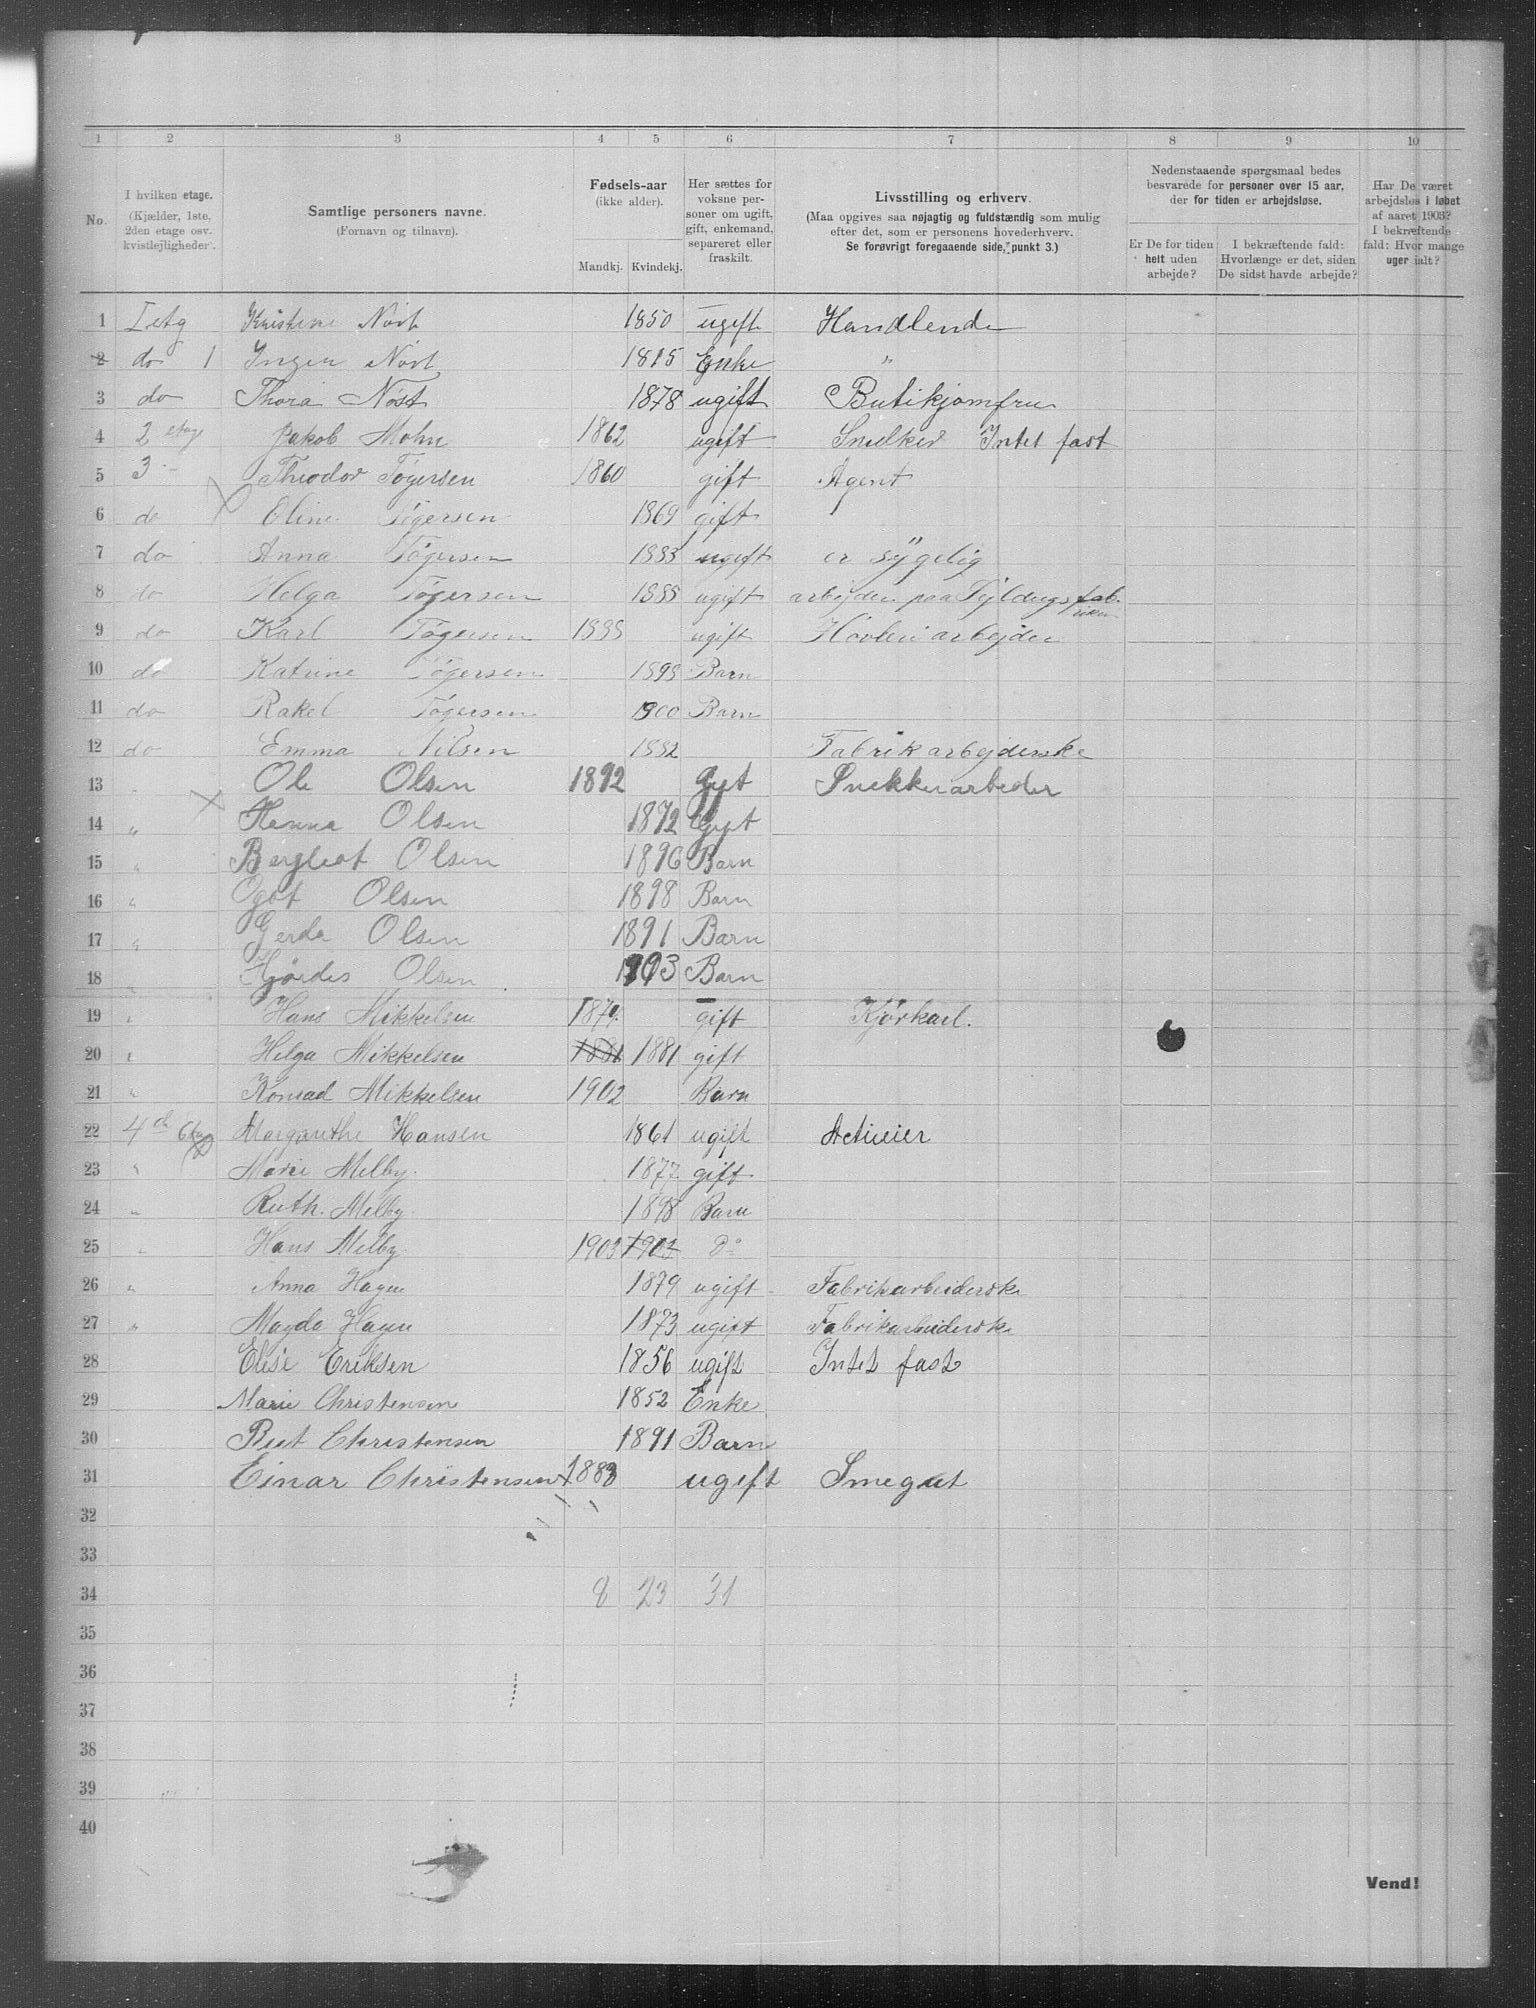 1 2 3 4 5 6 7 8 9 10
No.
I hvilken etage.
(Kjælder, 1ste,
2den etage osv.
kvistlejligheder).
Samtlige personers navne.
(Fornavn og tilnavn).
Fødsels-aar
(ikke alder).
Mandkj. Kvindekj.
Her sættes for
voksne per-
soner om ugift,
gift, enkemand,
separeret eller
fraskilt.
Livsstilling og erhverv.
(Maa opgives saa nøjagtig og fuldstændig som mulig
efter det, som er personens hovederhverv.
Se forøvrigt foregaaende side, punkt 3.)
Nedenstaaende spørgsmaal bedes
besvarede for personer over 15 aar,
der for tiden er arbejdsløse.
Er De for tiden
helt uden
arbejde?
I bekræftende fald:
Hvorlænge er det, siden
De sidst havde arbejde?
Har De været
arbejdsløs i løbet
af aaret 1903?
I bekræftende
fald: Hvor mange
uger ialt?
1 I etg Kristine Nöst 1850 ugift Handlende
2 do 1 Inger Nöst 1815 Enke "
3 do Thora Nöst 1878 ugift Butikjomfru
4 2 etage Jakob Mohn 1862 ugift Snedker Intet fast
5 3 - Theodor Tøgersen 1860 gift Agent
6 do Oline Tøgersen 1869 gift
7 do Anna Tøgersen 1883 ugift er sygelig
8 do Helga Tøgersen 1885 ugift arbejder paa Sejldugsfab-
riken
9 do Karl Tøgersen 1888 ugift Høvleriarbejder
10 do Katrine Tøgersen 1898 Barn
11 do Rakel Tøgersen 1900 Barn
12 do Emma Nilsen 1882 Fabrikarbejderske
13 Ole Olsen 1892 Gift Snekkerarbeder
14 " Hanna Olsen 1872 Gift
15 " Bergleot Olsen 1896 Barn
16 " Ogot Olsen 1898 Barn
17 " Gerda Olsen 1891 Barn
18 " Hjördis Olsen 1903 Barn
19 " Hans Mikkelsen 1879 gift Kjørkarl.
20 " Helga Mikkelsen 1881 1881 gift
21 " Konrad Mikkelsen 1902 Barn
22 4de Etg Margrethe Hansen 1861 ugift
23 " Marie Melby. 1877. gift
24 " Ruth. Melby. 1898 Barn
25 " Hans Melby. 1903 1903 Do
26 " Anna Hagen 1879 ugift Fabrikarbeiderske
27 " Magda Hagen 1873 ugift Fabrikarbeiderske
28 Elise Eriksen 1856 ugift Intet fast
29 Marie Christensen 1852 Enke
30 Rut Christensen 1891 Barn
31 Einar Christensen 1888 ugift Smegut
32
33
34 8 23 31
35
36
37
38
39
40
Vend!